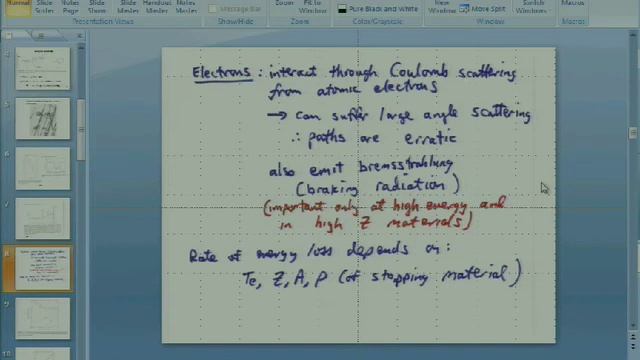 Normal Slide Sorter Notes Page Slide Show Slide Master Handout Master Notes Master
Message Bar
Zoom Fit to Window
Pure Black and White
Move Split
Switch Windows
Macros
Presentation Views
Show/Hide
Zoom
Color/Grayscale
Window
Macros
Electrons : interact through Coulomb scattering
from atomic electrons
→ can suffer large angle scattering
∴ paths are erratic
also emit bremsstrahlung
(braking radiation)
(important only at high energy and
in high Z materials)
Rate of energy loss depends on:
Te, Z, A, ρ (of stopping material)
4
5
6
7
8
9
10